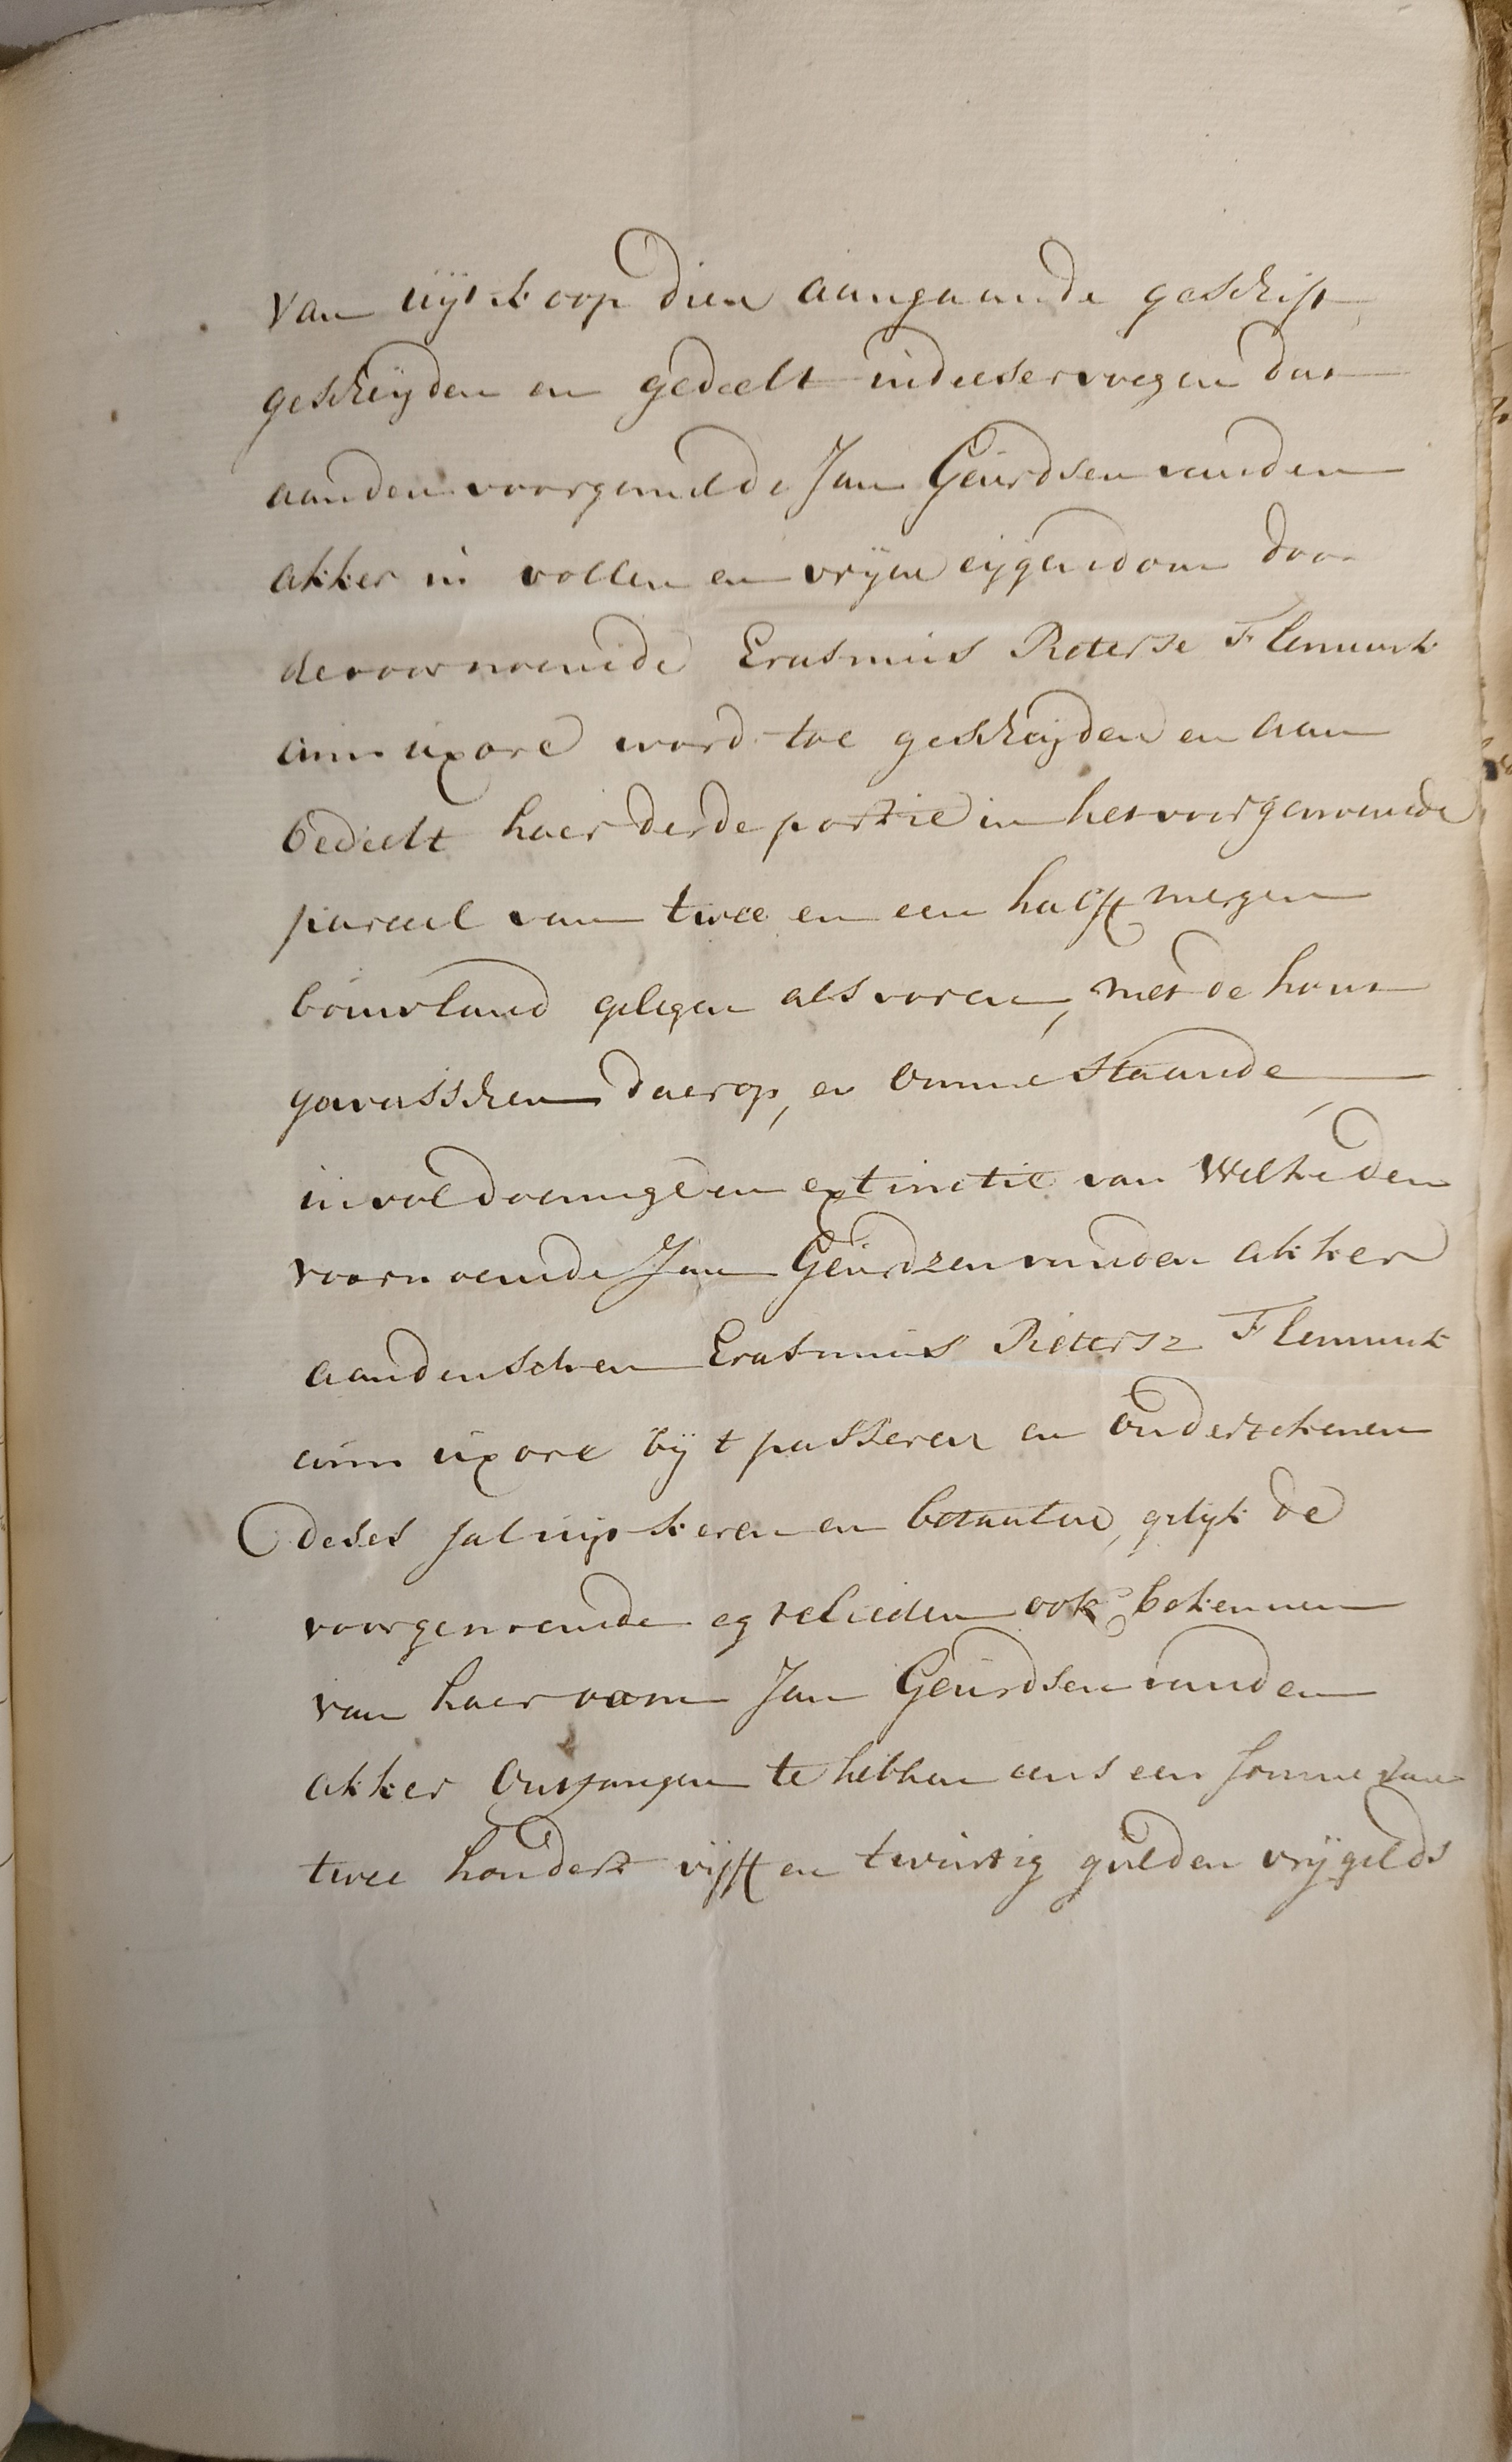 van uijtkoop dien aangaande geschift
gescheijden en gedeelt indeeser voegen dat
aanden voorgemelde Jan Geurdsen vanden
akker in vollen en vrijen eijgendom door
de voornoemde Erasmus Peterse Flemink
cum uxore word toe gescheijden en aan
bedeelt haer derde portie in het voorgenoemde
parceel van twee en een halff mergen
bouwland gelegen als voren, met de hout
gewasschen daer op, en omme staande
in voldoeninge en extinctie van welke den
voornoemde Jan Geurdzen vanden akker
aan denselven Erasmus Pietersz Flemink
cum uxore bij t passeren en onderzekenen
deses sal uijtkeren en betaalen, gelijk de
voorgenoemde egtelieden ook bekennen
van haer oom Jan Geurdsen vanden
akker ontfangen te hebben eens een somme van
twee hondert vijff en twintig gulden vrijgelds